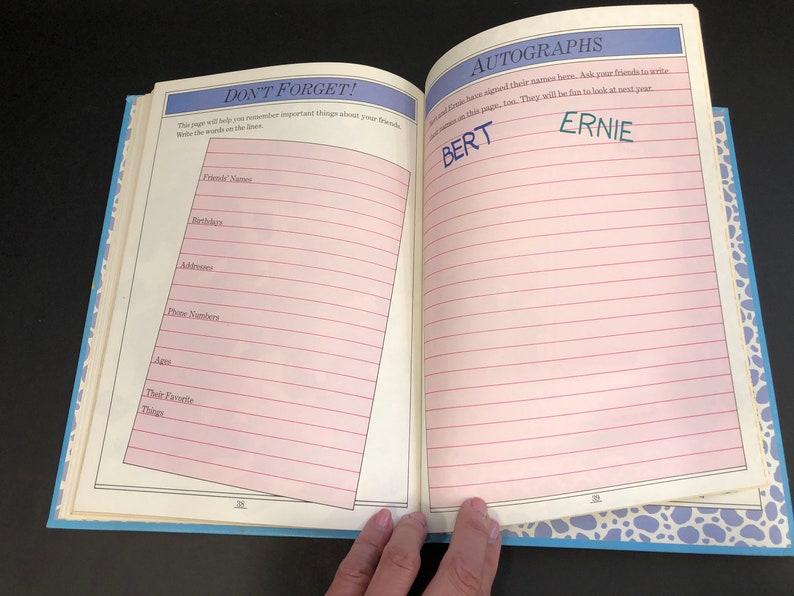 DON'T FORGET!
This page will help you remember important things about your friends.
Write the words on the lines.
Friends' Names
Birthdays
Addresses
Phone Numbers
Ages
Their Favorite
Things
38
AUTOGRAPHS
and Ernie have signed their names here. Ask your friends to write
names on this page, too. They will be fun to look at next year.
BERT
ERNIE
39